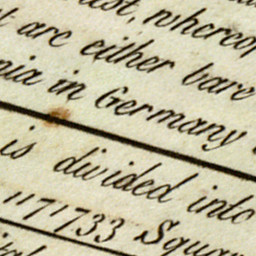 whereof
are either bare
in Germany
is divided into
1171733 Squa